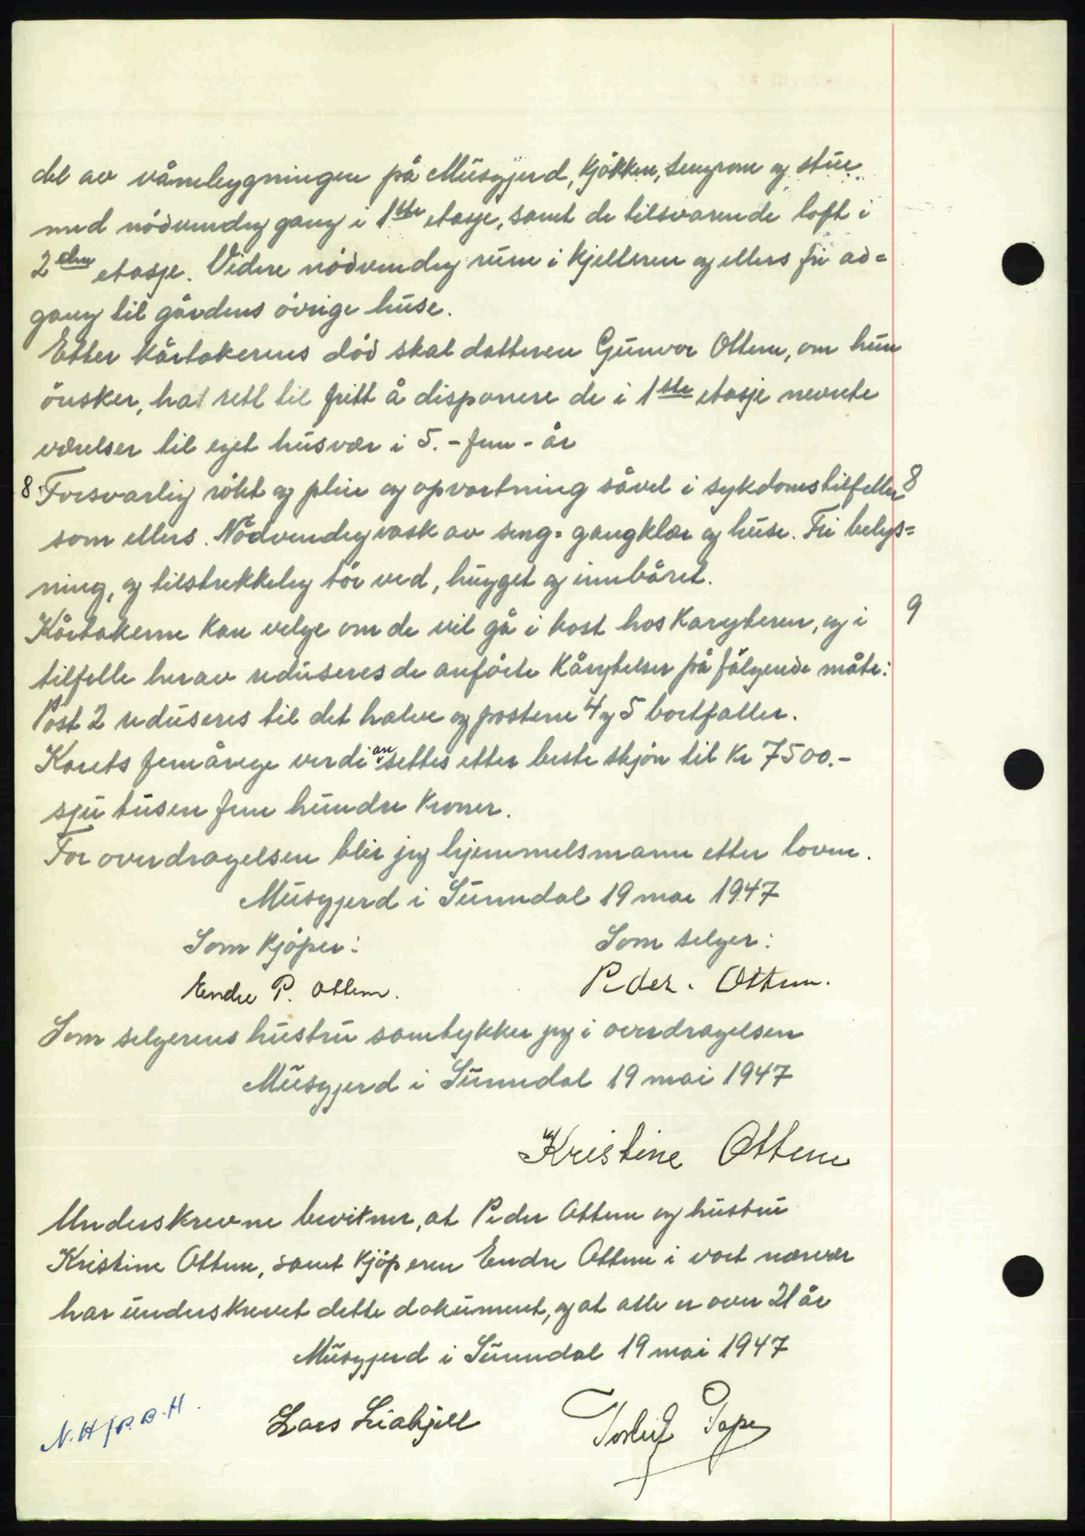 del av våningbygningen på Musgjerd, kjøkken, sengrom og stue
med nödvendig gang i 1ste etasje, samt de tilsvarende loft i
2den etasje. Videre nödvendig rum i kjelleren og ellers fri ad=
gang til gårdens övrige huse.
Etter kårtakernes död skal datteren Gunvor Ottem, om hun
önsker, ha rett til fritt å disponere de i 1ste etasje nevnte
værelser til eget husvær i 5. - fem - år
8 Forsvarlig rökt og pleie og opvartning såvel i sykdomstilfeller 8
som ellers. Nödvendig vask av seng= gangklær og huse. Fri belys=
ning, og tilstrekkelig tör ved, hugget og innbåret.
Kårtakerne kan velge om de vil gå i kost hos kåryteren, og i 9
tilfelle herav reduseres de anförte kårytelser på fölgende måte:
Post 2 reduseres til det halve og postene 4 og 5 bortfaller.
Kårets femårige verdi ansettes etter beste skjön til kr 7500.-
sju tusen fem hundre kroner.
For overdragelsen blir jeg hjemmelsmann etter loven.
Musgjerd i Sunndal 19 mai 1947
Som kjöper: Som selger:
Endre P. Ottem. Peder. Ottem.
Som selgerens hustru samtykker jeg i overdragelsen
Musgjerd i Sunndal 19 mai 1947
Kristine Ottem
Underskrevne bevitner, at Peder Ottem og hustru
Kristine Ottem, samt kjöperen Endre Ottem i vort nærvær
har underskrevet dette dokument, og at alle er over 21 år
Musgjerd i Sunndal 19 mai 1947
N.H/P.B.H. Lars Liahjell Torleif